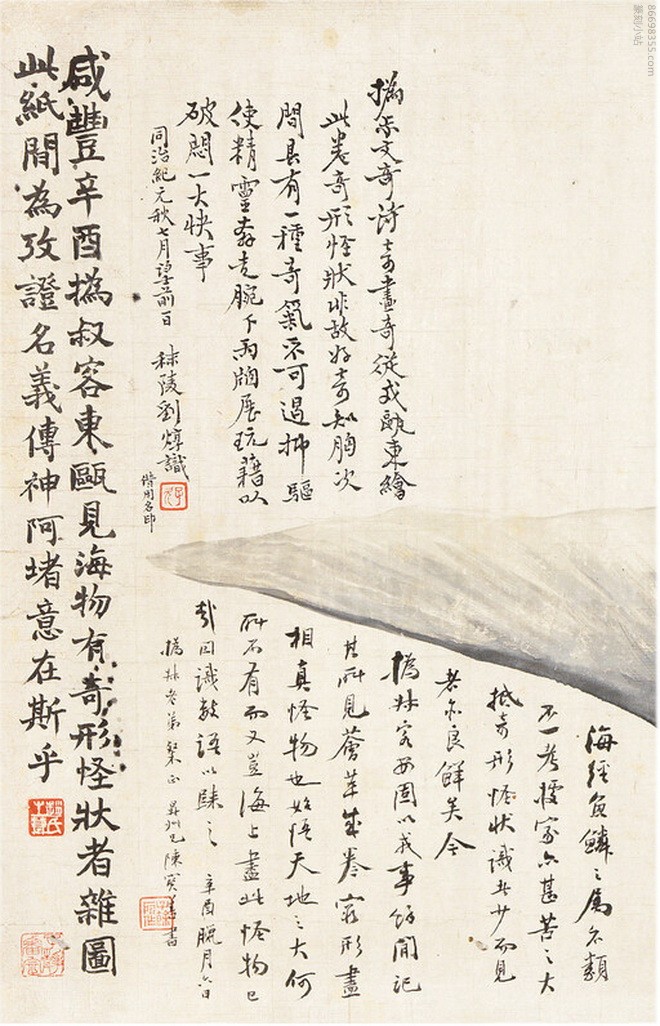 撝叔文奇詩奇畫奇從戎甌東繪
此卷奇形怪狀非故好奇知胸次
間具有一種奇氣不可遏抑驅
使精靈奔走腕下雨牕展玩藉以
破悶一大快事
同治紀元秋七月望前一日 秣陵劉焞識
僭用名印
海經魚鱗之屬不類
不一考據家亦甚苦之大
抵奇形怪狀識者少而見
者亦良鮮矣今
撝叔客甌固以戎事餘閒記
其所見薈萃成卷窮形盡
相真怪物也始悟天地之大何
所不有而又豈海上盡此怪物已
哉因識數語以歸之 辛酉臘月六日
撝叔老弟鑒正 昇州兄陳寶善書
咸豐辛酉撝叔客東甌見海物有奇形怪狀者雜圖
此紙間為攷證名義傳神阿堵意在斯乎
86698355.com
篆刻小站